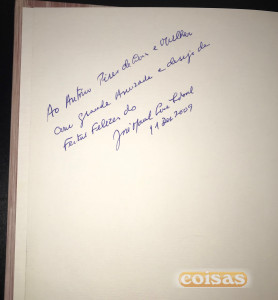 Ao António Pires de Lima e Mulher
com grande Amizade e desejo de
Festas Felizes do
José
11 Dez 2009
coisas